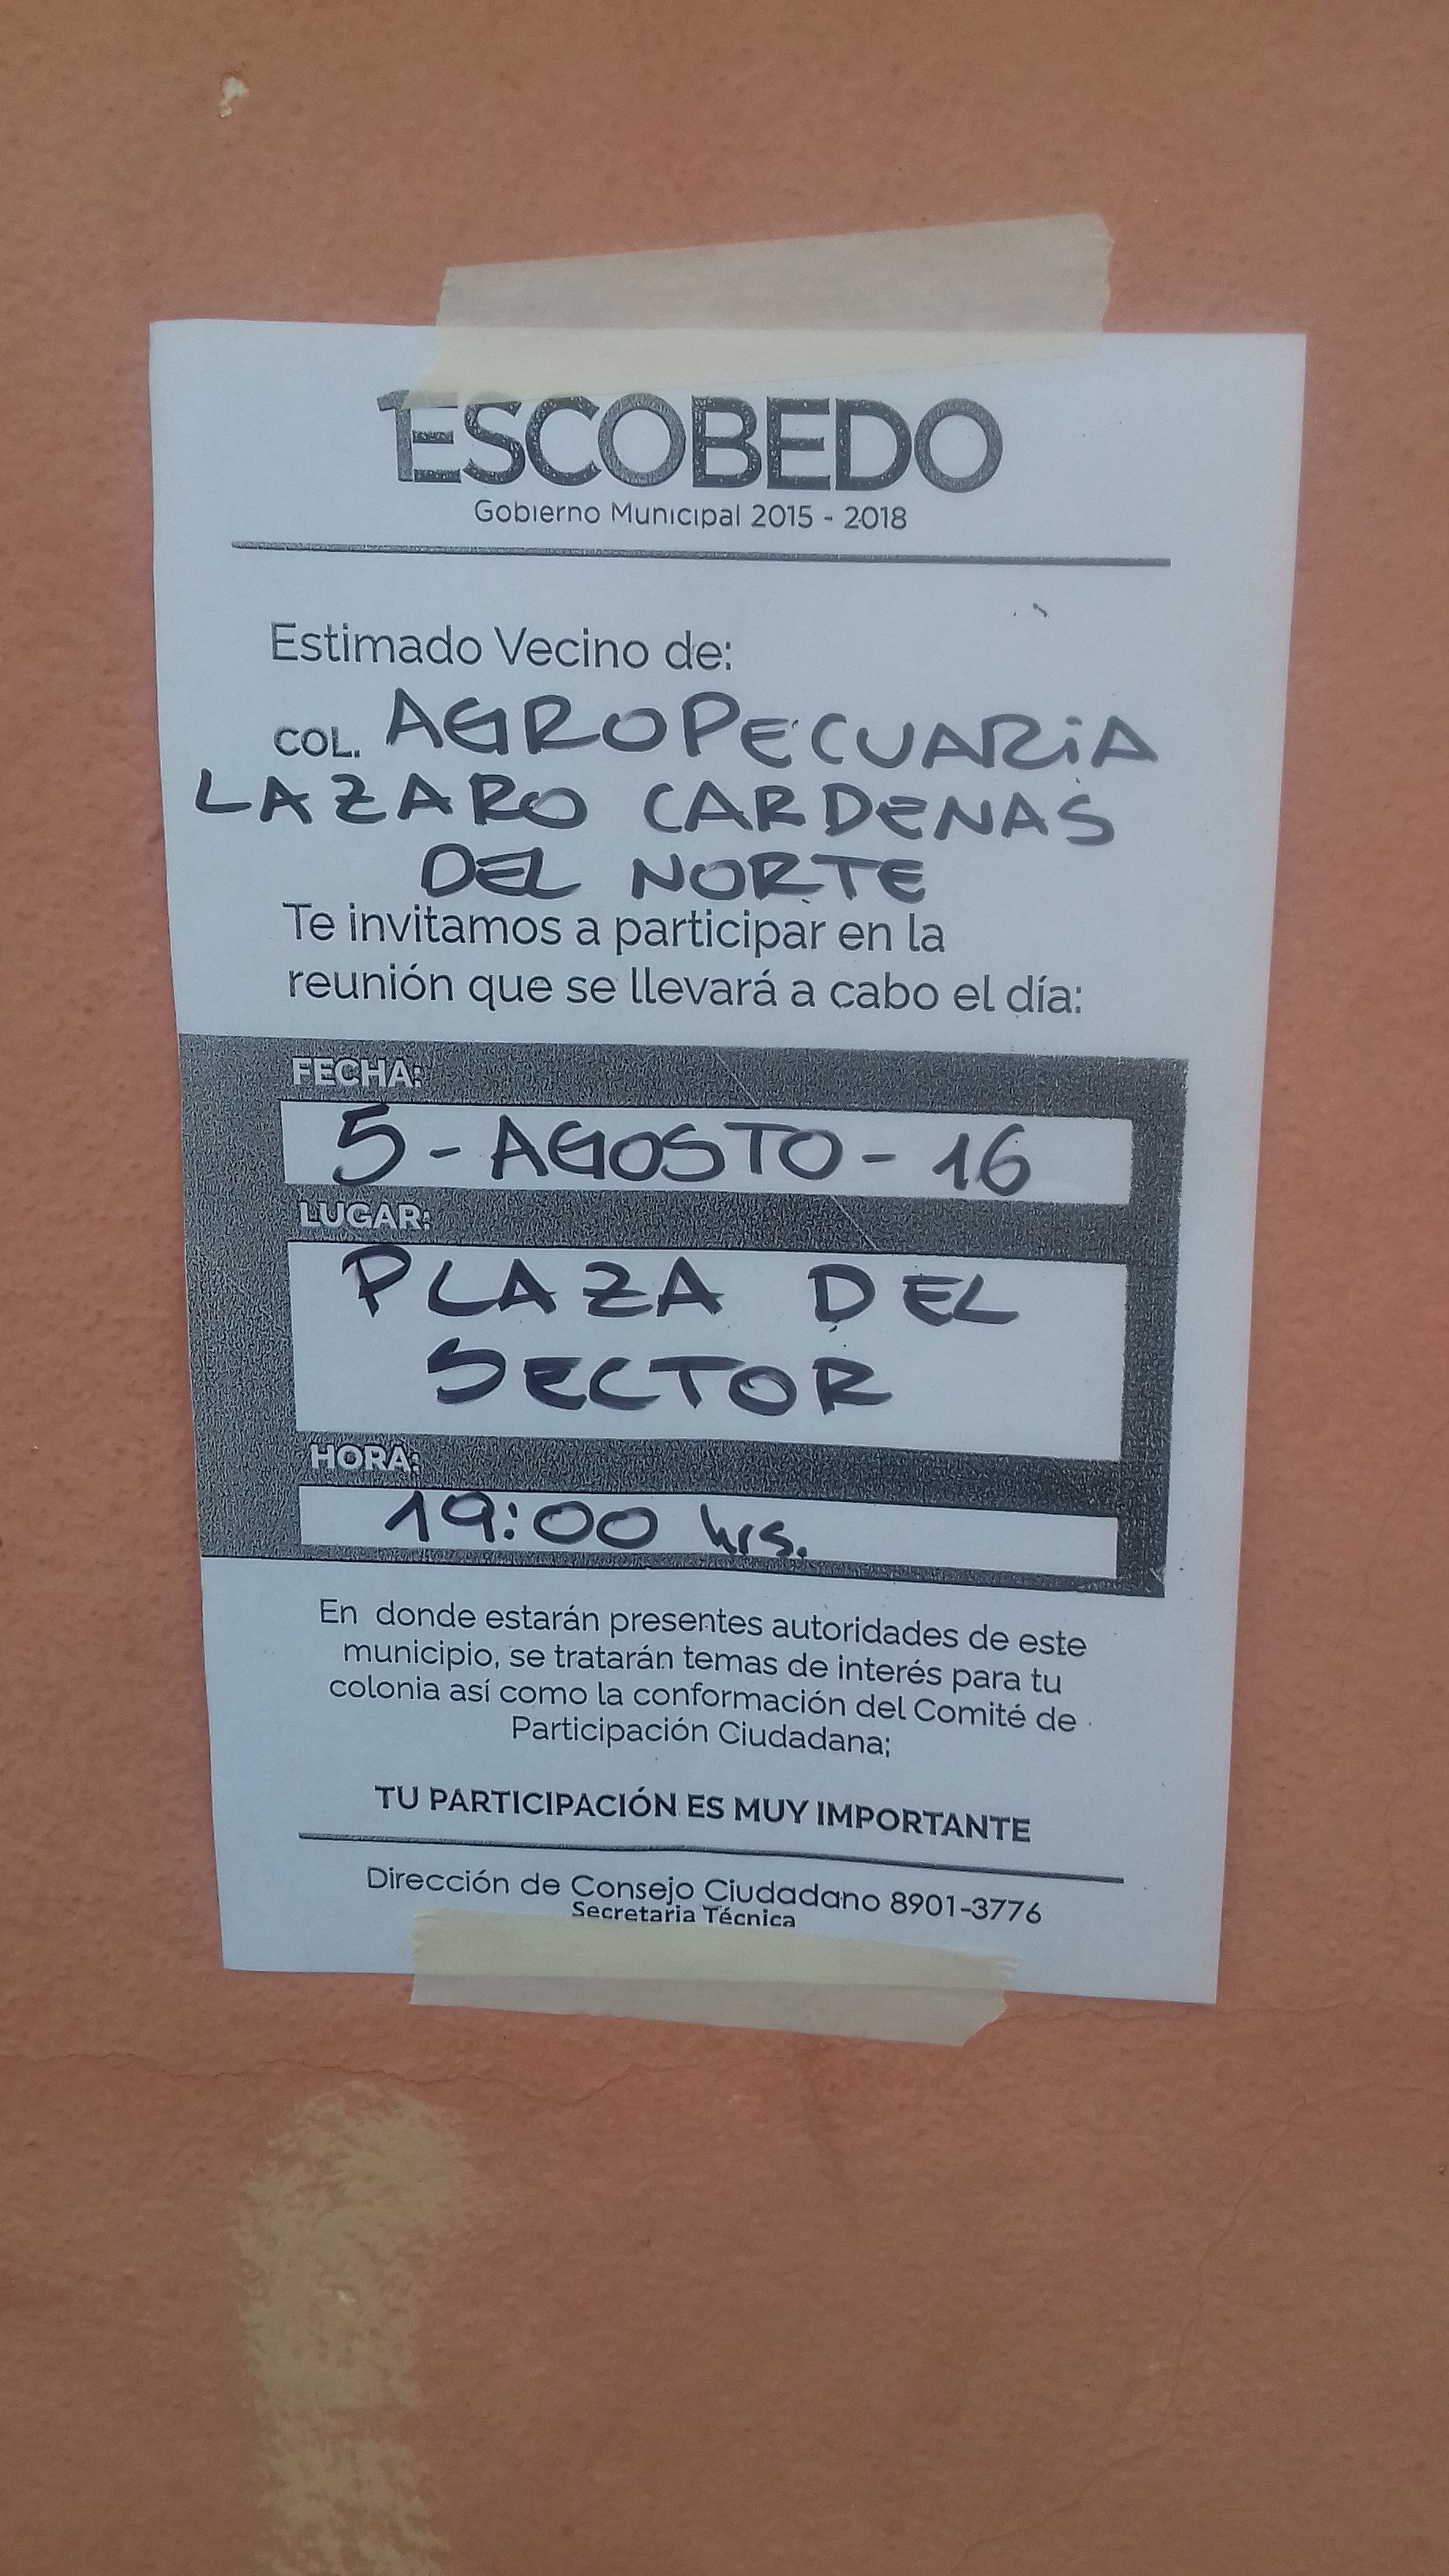 ESCOBEDO
Gobierno Municipal 2015 - 2018
Estimado Vecino de:
COL. AGROPECUARIA
LAZARO CARDENAS
DEL NORTE
Te invitamos a participar en la
reunión que se llevará a cabo el día:
FECHA:
5-AGOSTO-16
LUGAR:
PLAZA DEL
SECTOR
HORA:
19:00 hrs.
En donde estarán presentes autoridades de este
municipio, se tratarán temas de interés para tu
colonia así como la conformación del Comité de
Participación Ciudadana;
TU PARTICIPACIÓN ES MUY IMPORTANTE
Dirección de Consejo Ciudadano 8901-3776
Secretaria Técnica